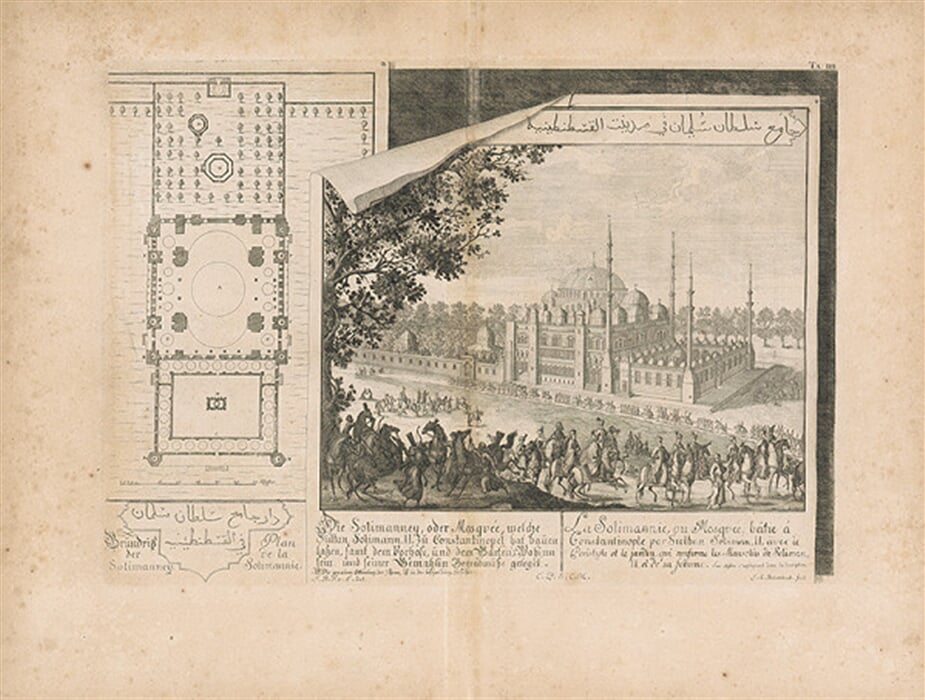 Ta. III
جامع سلطان سُلمان في مدينت القسطنطينية
دار جامع سلطان سلمان
في القسطنطينيه
Grundriß
der
Solimanney
Plan
de la
Solimannie.
Die Solimanney, oder Mosquée, welche
Sultan Soliman. II. zu Constantinopel hat bauen
laßen, samt dem Vorhofe, und dem Garten, Worinn
sein und seiner Gemahlin Begräbniße gelegt.
La Solimannie, ou Mosquée, bâtie à
Constantinople par Sulthan Soliman. II. avec le
Peristyle et le jardin qui renferme les Mausolées de Soliman.
II. et de sa femme.
C. P. S. C. M.